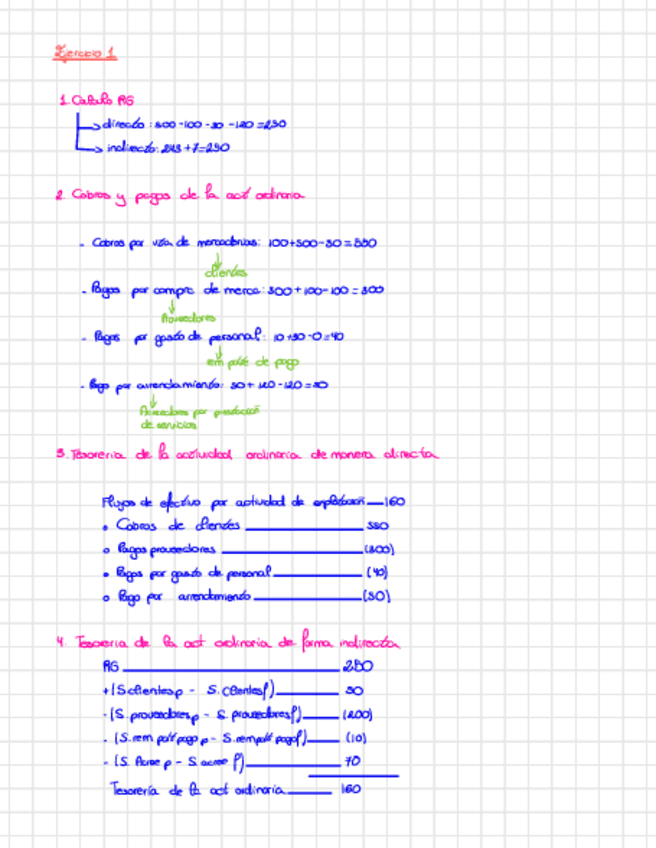 Ejercicio 1
1. Calculo RG
directo: 500-100-30-120=250
indirecto: 243+7=250
2. Cobros y pagos de la act ordinaria
- Cobros por vta de mercaderias: 100+500-50=550
clientes
- Pagos por compra de merca: 300+100-100=300
Proveedores
- Pagos por gasto de personal: 10+30-0=40
rem pdte de pago
- Pago por arrendamiento: 50+120-120=50
Acreedores por prestación
de servicios
3. Tesoreria de la actividad ordinaria de manera directa
Flujos de efectivo por actividad de explotación 160
Cobros de clientes 550
Pagos proveedores (300)
Pagos por gasto de personal (40)
Pago por arrendamiento (50)
4. Tesoreria de la act ordinaria de forma indirecta
RG 250
+(S.clientes p - S.clientes f) 50
-(S. proveedores p - S. proveedores f) (200)
-(S. rem pdt pago p - S. rem pdt pago f) (10)
-(S. Acree p - S. acree f) 70
Tesorería de la act ordinaria 160